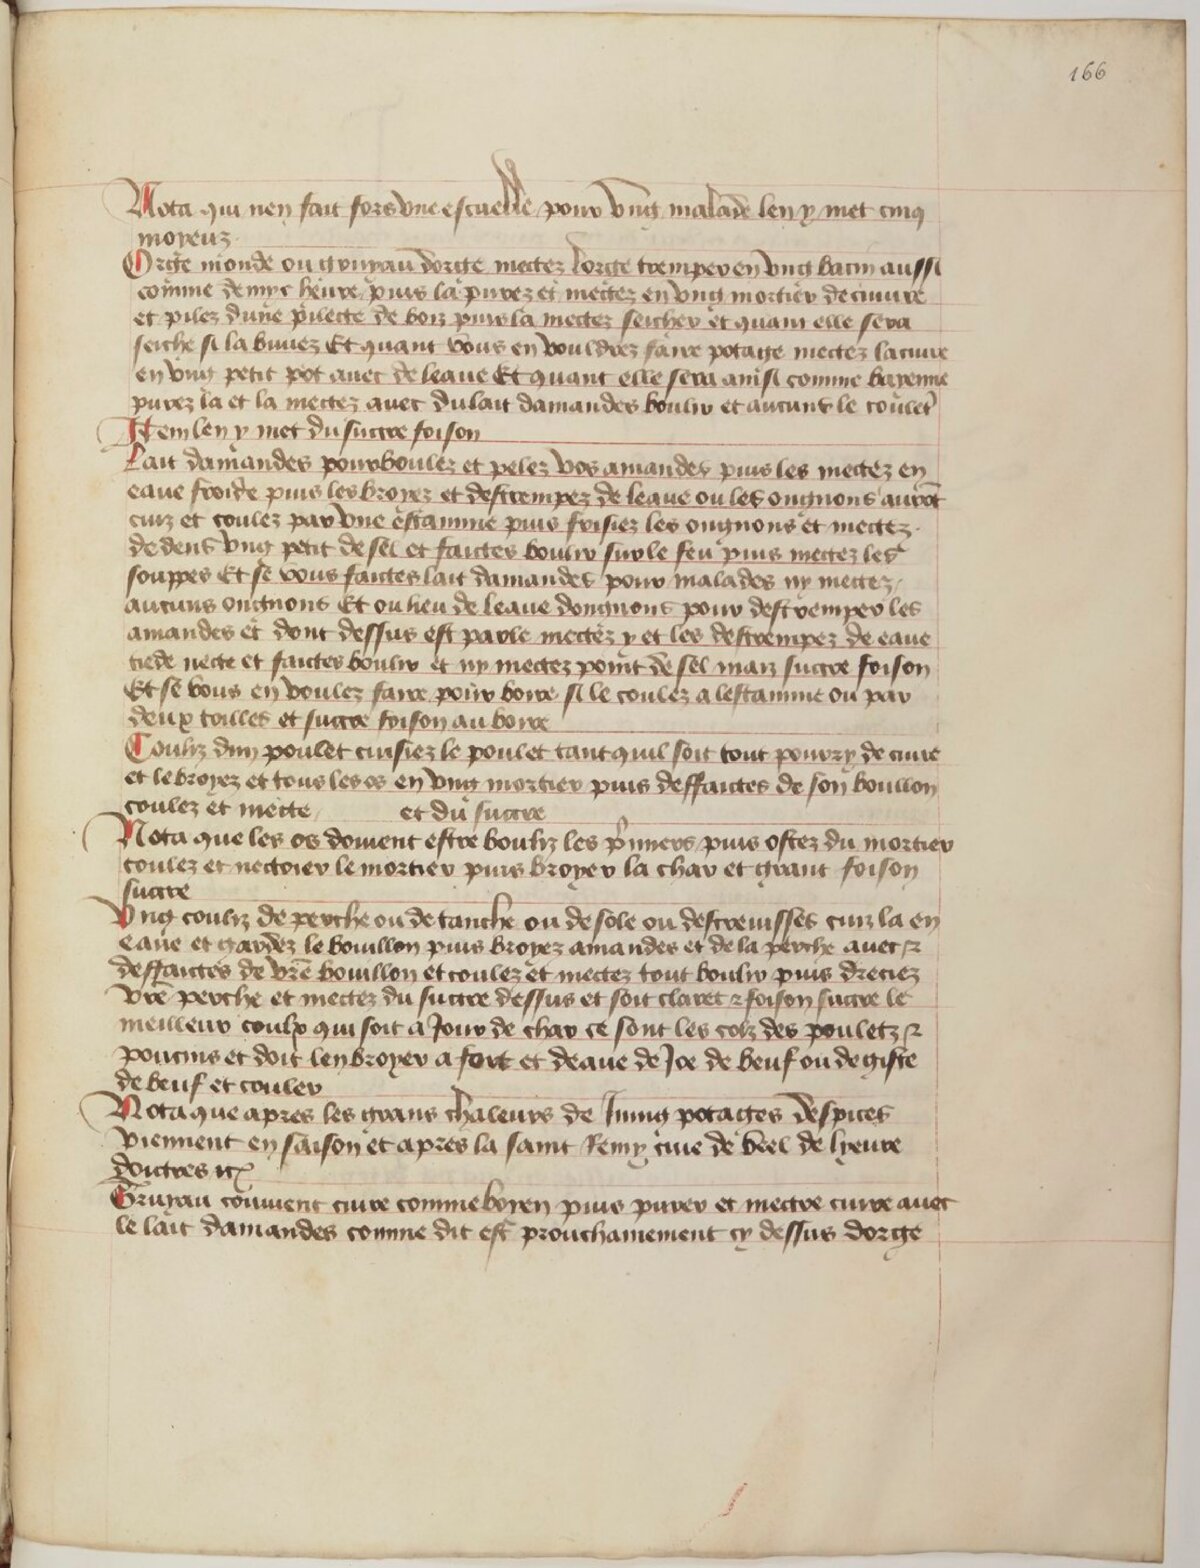 166
Nota qui nen fait fors une escuelle pour ung malade len y met cinq
moyeuz
Orge monde ou gruyau dorge mectez lorge tremper en ung bacin aussi
comme demye heure puis la purez et mectez en ung mortier de cuivre
et pilez dune pilecte de boiz puis la mectez seicher et quant elle sera
seiche si la vuuez Et quant vous en vouldrez faire potage mectez la cuire
en ung petit pot avec de leaue Et quant elle sera ainsi comme bayenne
purez la et la mectez avec du lait damandes boulir et aucuns le coulet
Item len y met du succre foison
Lait damandes pourboulez et pelez vos amandes puis les mectez en
eaue froide puis les broyez et destrempez de leaue ou les ongnons auront
cuiz et coulez par une estamine puis frisiez les ongnons et mectez
dedens ung petit de sel et faictes boulir sur le feu puis mectez les
souppes Et se vous faictes lait damandes pour malades ny mectez
aucuns ongnons Et ou lieu de leaue dongnons pour destremper les
amandes et dont dessus est parle mectez y et les destrempez de eaue
tiede necte et faictes boulir et ny mectez point de sel maiz succre foison
Et se vous en voulez faire pour boire si le coulez a lestamine ou par
deux toilles et succre foison au boire
Couliz dun poulet cuisiez le poulet tant quil soit tout pourry de cuire
et le broyez et tous les os en ung mortier puis deffaictes de son boullon
coulez et mecte et du succre
Nota que les os doivent estre bouliz les p̃miers puis ostez du mortier
coulez et nectoier le mortier puis broyer la char et grant foison
succre
Ung couliz de perche ou de tanche ou de sole ou descrevisses cuiz la en
eaue et gardez le bouillon puis broyez amandes et de la perche avec ⁊
deffaictes de vr̃e bouillon et coulez et mectez tout boulir puis dreciez
vr̃e perche et mectez du succre dessus et soit claret ⁊ foison succre le
meilleur coulix qui soit a jour de char ce sont les colz des pouletz ⁊
poucins et doit len broyer a fort et deaue de Joe de beuf ou de giste
de beuf et couler
Nota que apres les grans chaleurs de Juing potages despices
viennent en saison et apres la saint Remy cive de veel de lyevre
doictres etc̃
Gruyau convient cuire comme boyen puis purer et mectre cuire avec
le lait damandes comme dit est prouchainement cy dessus dorge